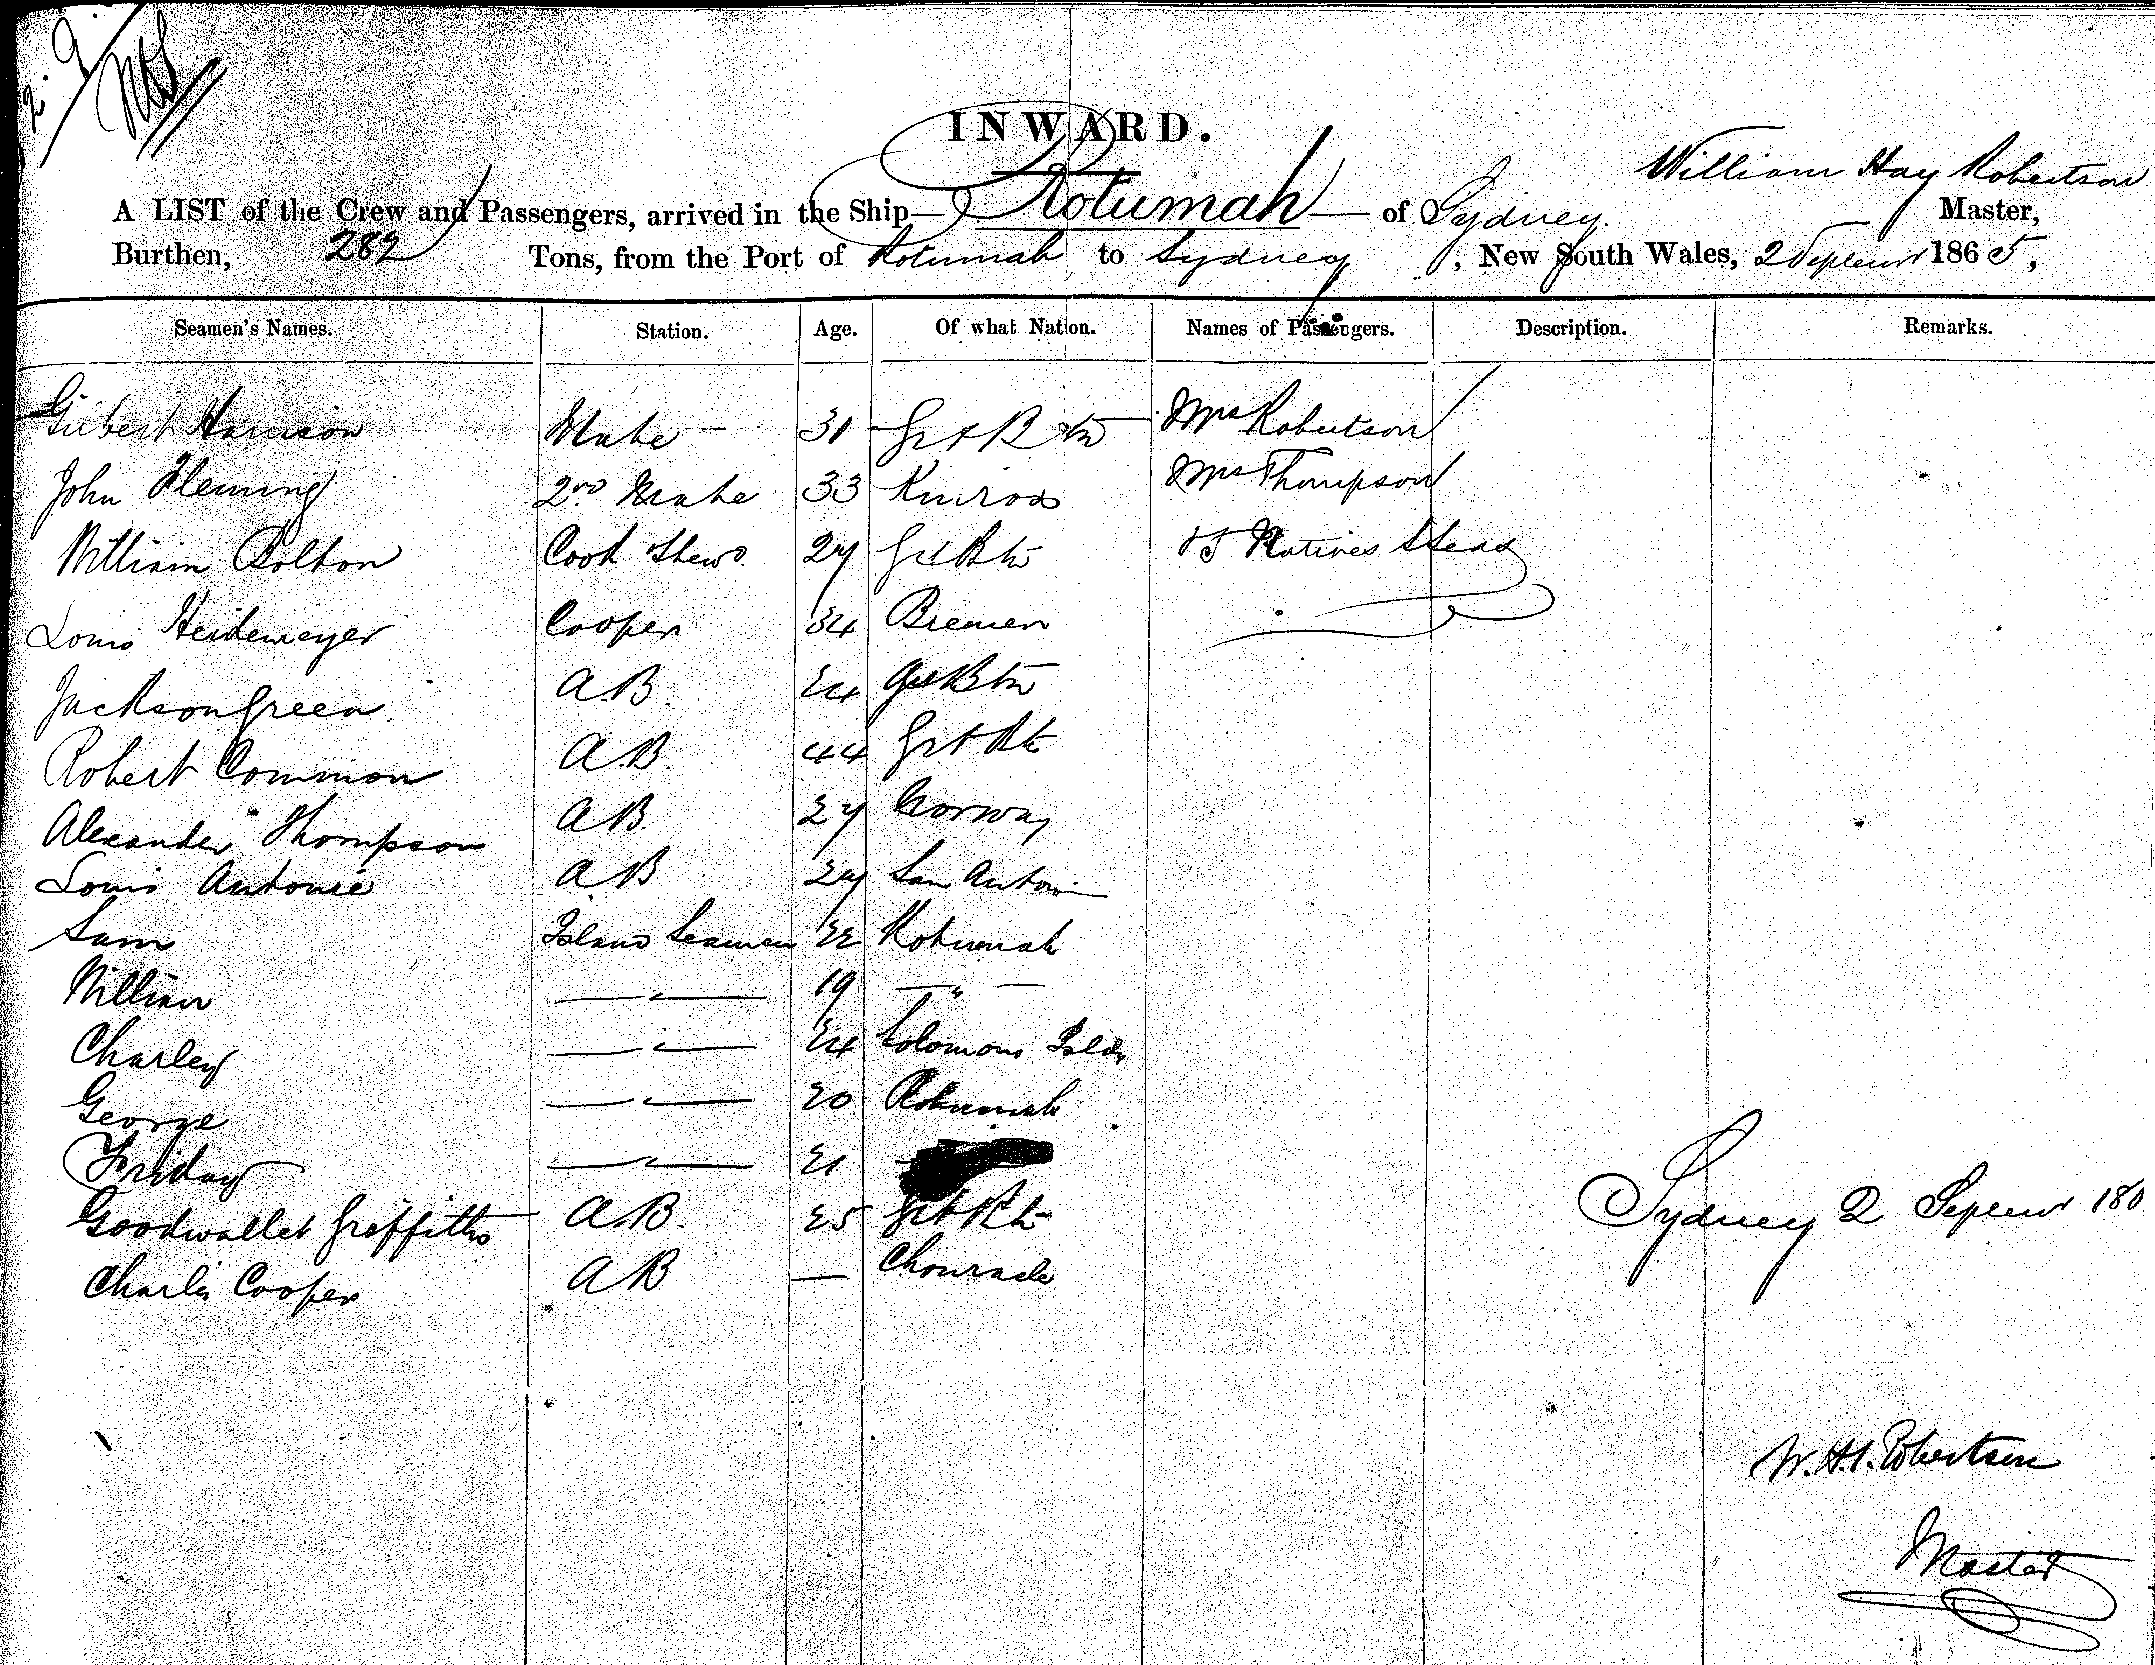 INWARD.
William Hay Robertson
A LIST of the Crew and Passengers, arrived in the Ship Rotumah of Sydney. Master,
Burthen, 282 Tons, from the Port of Rotumah to Sydney, New South Wales, 2 1865,
Seamen's Names. Station. Age. Of what Nation. Names of Passengers. Description. Remarks.
Gilbert Harrison Mate 31 Grt Btn Mrs Robertson
John Fleming 2nd Mate 33 Kinross Mrs Thompson
William Bolton Cook Stewd. 27 Grt Btn Natives
Louis Heidemeyer Cooper 34 Bremen
Jackson Green A.B. 24 Grt Btn
Robert Common A.B. 44 Grt Bt
Alexander Thompson A.B. 27 Norway
Louis Antonie A B San Anton
Sam Island Seaman 22 Rotumah
William — " — 19 — " —
Charley — " — 24 Solomons Islds
George — " — 20 Rotumah
Friday — " — 21
Goodwallet Griffiths A.B. 25 Grt Bt
Charlie Cooper A B —
Sydney 2 186
W. H. Robertson
Master